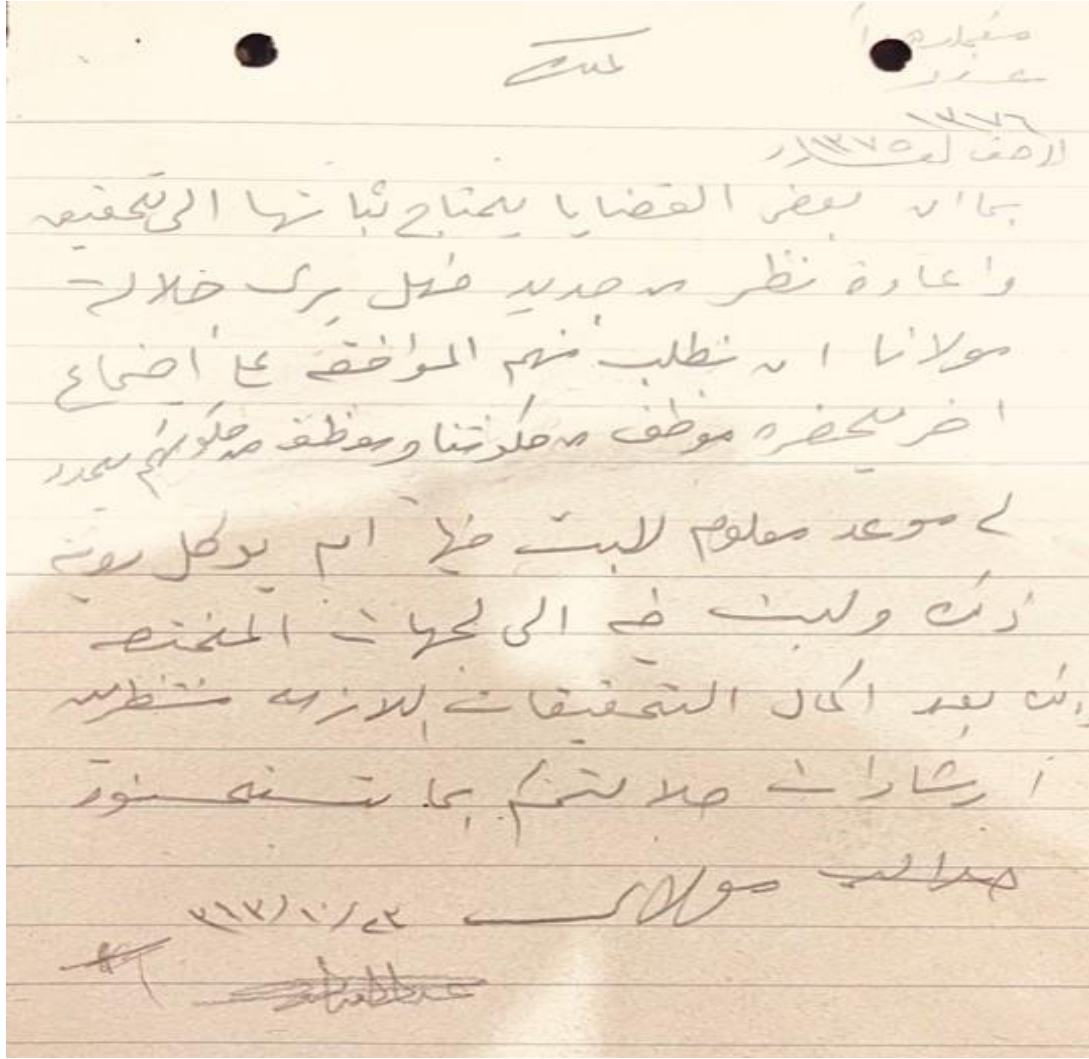 ١٣٧٦
بما ان بعض القضايا يحتاج ثباتها الى تحقيق
واعادة نظر من جديد فهل يرى جلالة
مولانا ان نطلب منهم الموافقة على اجتماع
اخر يحضره موظف من حكومتنا وموظف من حكومتهم يحدد
له موعد معلوم للبت فيها ام يوكل روية
ذلك ولبت فيه الى لجهات المختصه
بعد اكمال التحقيقات للازمه منتظرين
ارشادات جلالتكم بما تستحسنونه
مولاي